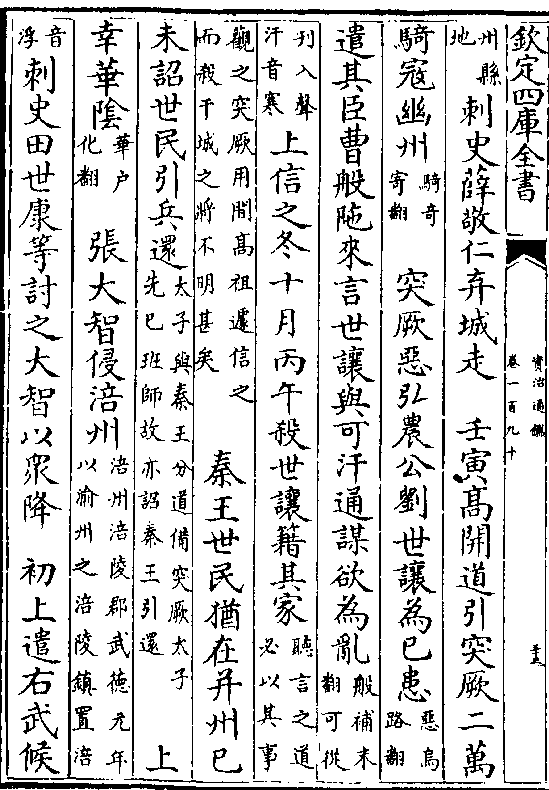 欽定四庫全書
資治通鑑
卷一百九十
州縣地刺史薛敬仁弃城走　壬寅高開道引突厥二萬
騎寇幽州騎奇寄翻　突厥惡弘農公劉世讓為已患惡烏路翻
遣其臣曹般陁來言世讓與可汗通謀欲為亂般補末翻可從
刊入聲汗音寒上信之冬十月丙午殺世讓籍其家聽言之道必以其事
觀之突厥用間高祖遽信之而殺干城之將不明甚矣　秦王世民猶在并州已
未詔世民引兵還太子與秦王分道備突厥太子先已班師故亦詔秦王引還　上
幸華陰華户化翻　張大智侵涪州涪州涪陵郡武德元年以渝州之涪陵鎮置涪
音浮刺史田世康等討之大智以衆降　初上遣右武候